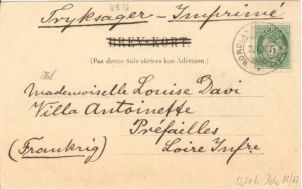 4916
Tryksager - Imprimé
BREV-KORT.
(Paa denne Side skrives kun Adressen.)
Til
Mademoiselle Louise Davi
Villa Antoinette
Préfailles
(Frankrig) Loire Infre
5